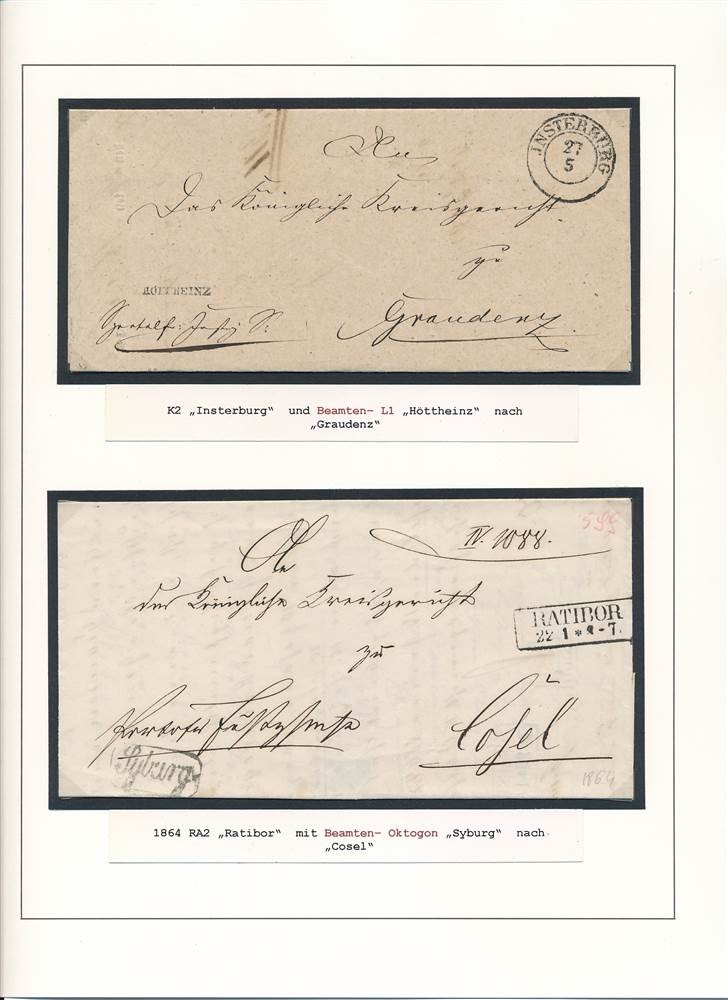 An
Das Königliche Kreisgericht
zu
Graudenz
JNSTERBURG
27
5
HÖTTHEINZ
K2 „Insterburg“ und Beamten- L1 „Höttheinz“ nach
„Graudenz“
IV. 1088.
599
An
das Königliche Kreisgericht
zu
Cosel
RATIBOR
22 1 *
Syburg
1864
1864 RA2 „Ratibor“ mit Beamten- Oktogon „Syburg“ nach
„Cosel“